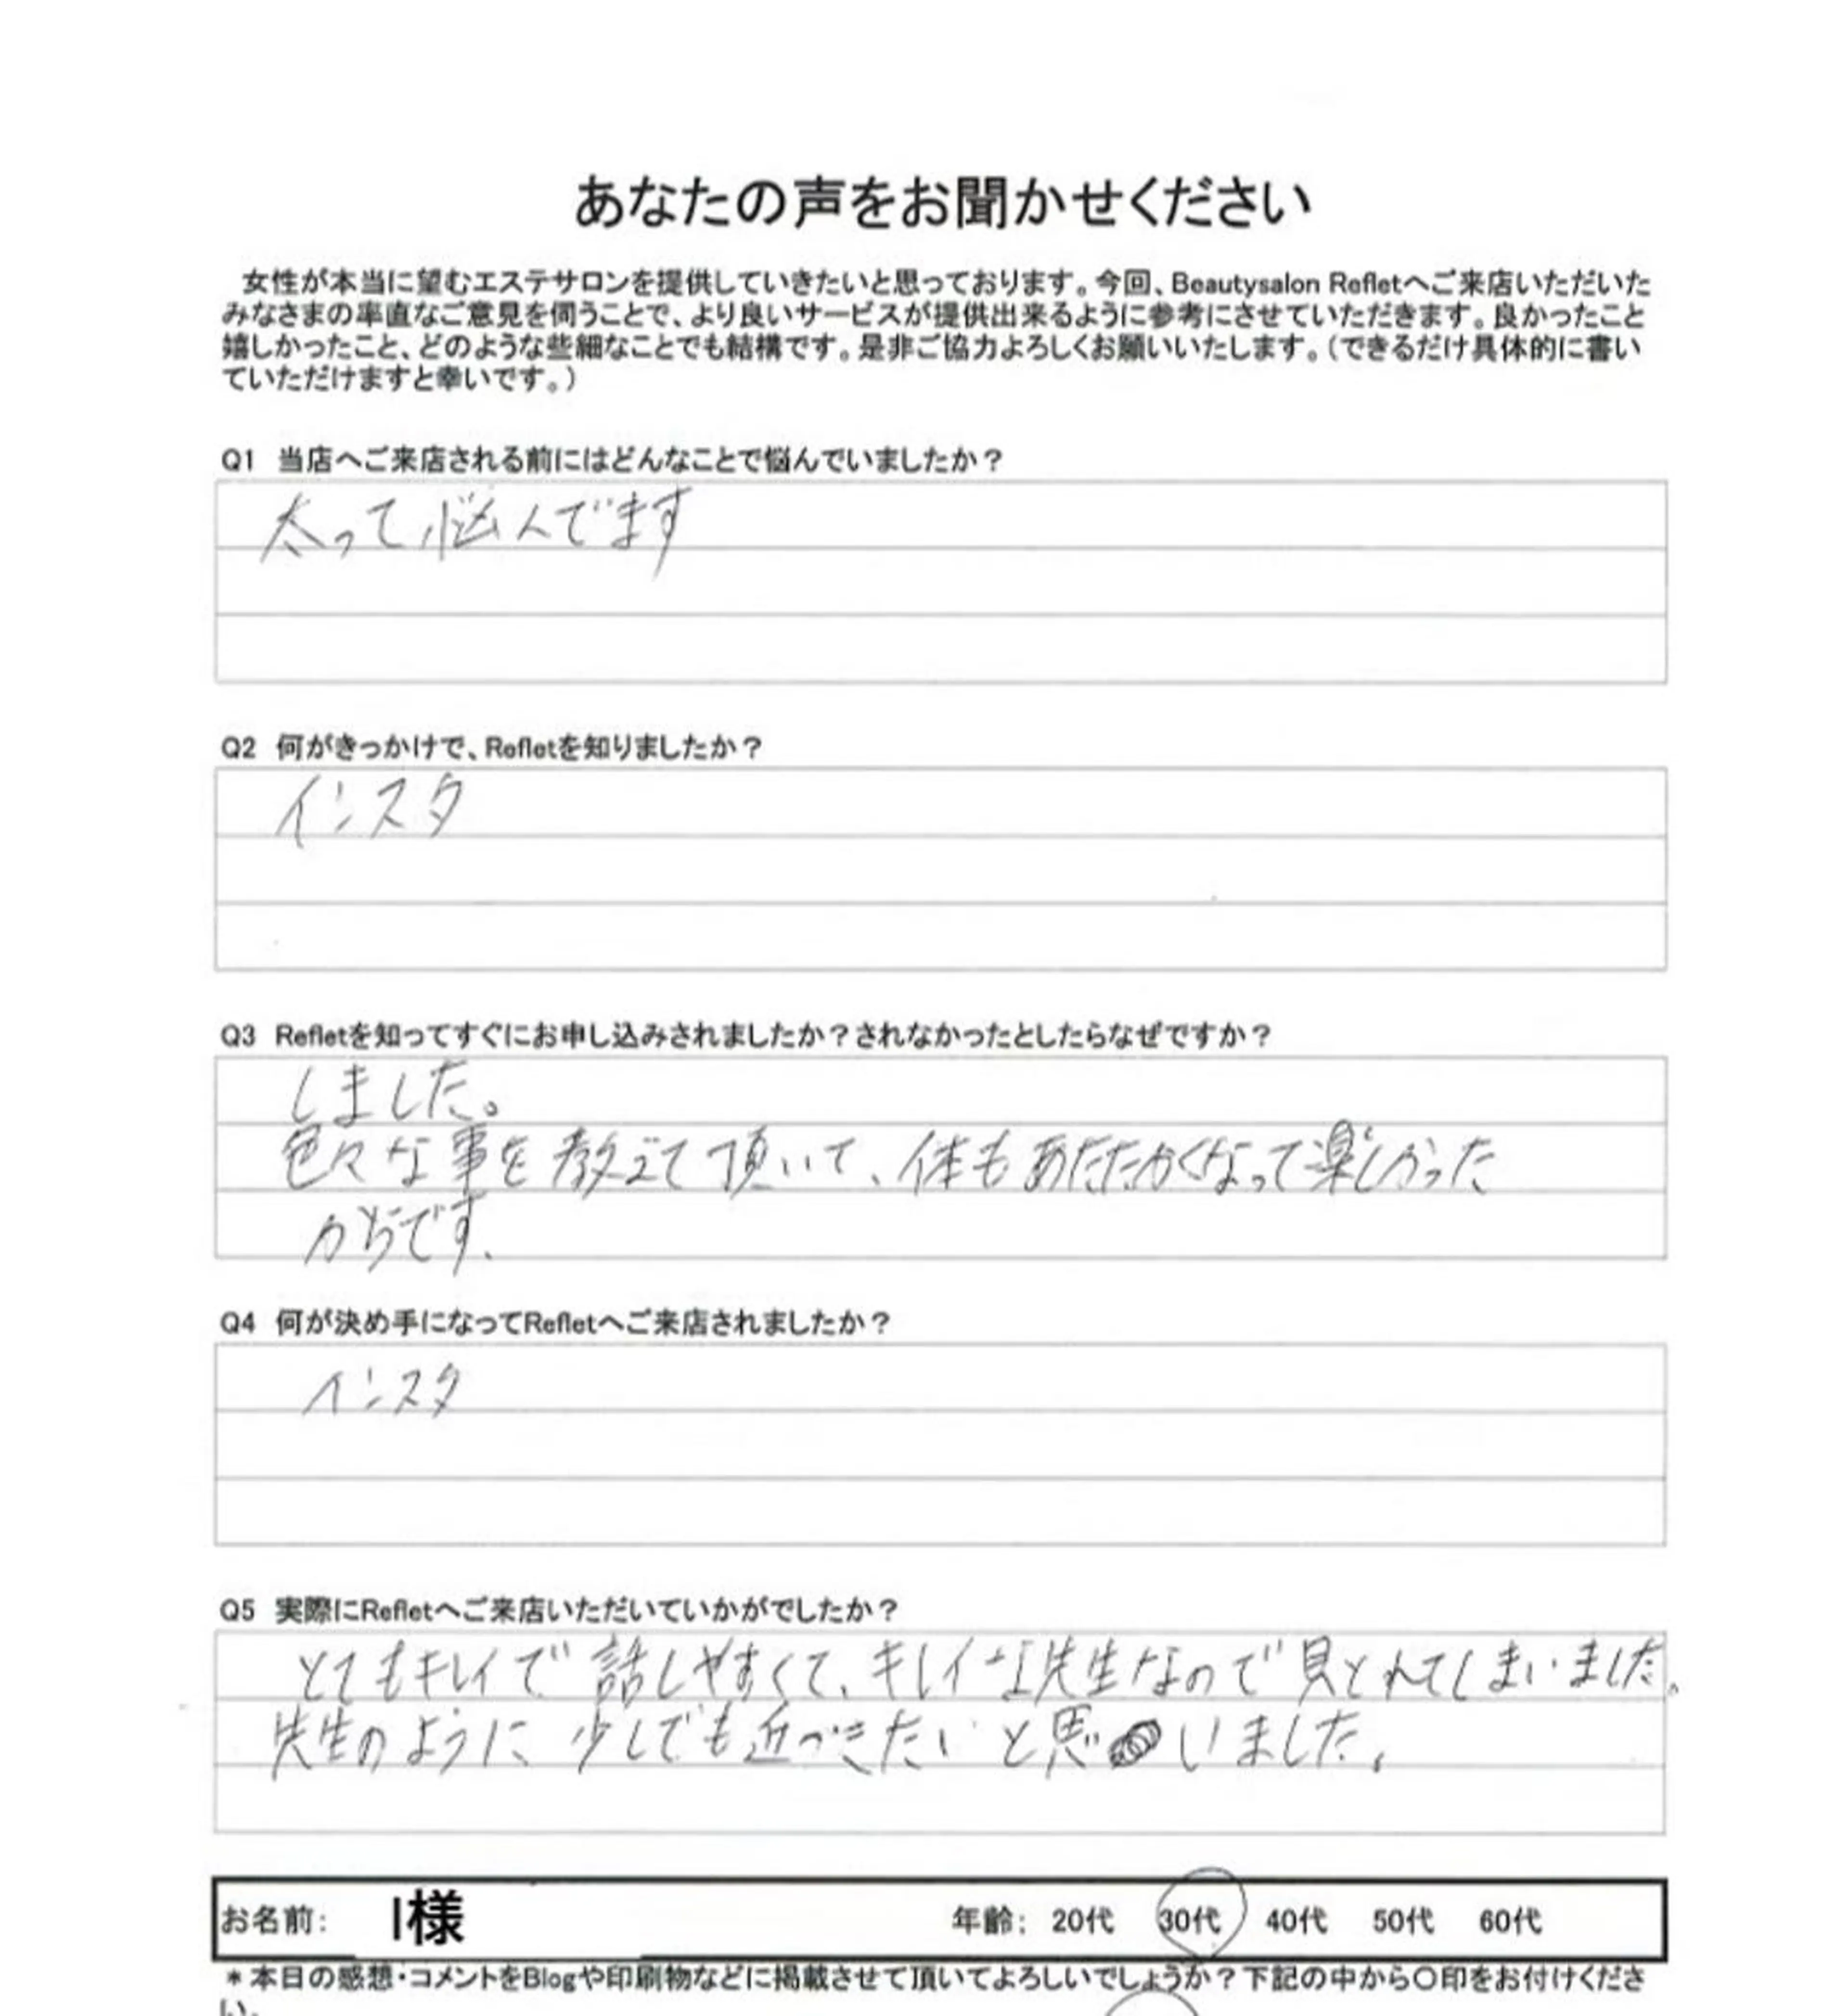 あなたの声をお聞かせください
女性が本当に望むエステサロンを提供していきたいと思っております。今回、Beautysalon Refletへご来店いただいた
みなさまの率直なご意見を伺うことで、より良いサービスが提供出来るように参考にさせていただきます。良かったこと
嬉しかったこと、どのような些細なことでも結構です。是非ご協力よろしくお願いいたします。(できるだけ具体的に書い
ていただけますと幸いです。)
Q1 当店へご来店される前にはどんなことで悩んでいましたか？
太って悩んでます
Q2 何がきっかけで、Refletを知りましたか？
インスタ
Q3 Refletを知ってすぐにお申し込みされましたか？されなかったとしたらなぜですか？
しました。
色々な事を教えて頂いて、体もあたたかくなって楽しかった
からです。
Q4 何が決め手になってRefletへご来店されましたか？
インスタ
Q5 実際にRefletへご来店いただいていかがでしたか？
とてもキレイで話しやすくて、キレイな先生なので見とれてしまいました。
先生のように少しでも近づきたいと思いました。
お名前: I様 年齢: 20代 30代 40代 50代 60代
＊本日の感想・コメントをBlogや印刷物などに掲載させて頂いてよろしいでしょうか？下記の中から○印をお付けくださ
い。